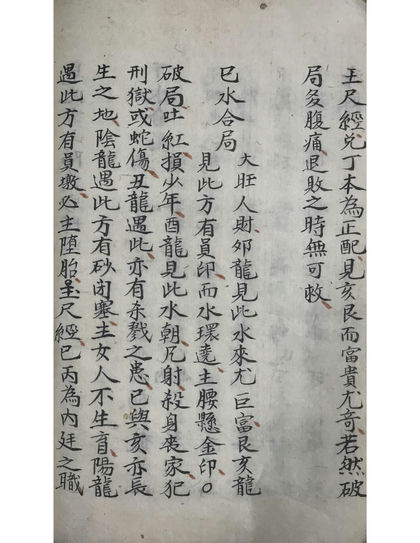 玉尺經兌丁本為正配見亥艮而富貴尤奇若然破
局多腹痛退敗之時無可救
巳水合局
大旺人財卯龍見此水來尤巨富艮亥龍
見此方有員印而水環遶主腰懸金印○
破局吐紅損少年酉龍見此水朝凢射殺身丧家犯
刑獄或蛇傷丑龍遇此亦有杀戮之患巳與亥亦長
生之地陰龍遇此方有砂閉塞主女人不生育陽龍
遇此方有員墩必主墮胎玉尺經巳丙為內廷之職